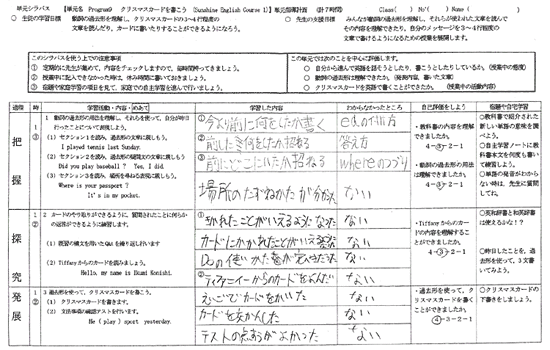 単元シラバス 【単元名 Program9 クリスマスカードを書こう (Sunshine English Course 1)】単元指導計画 (計７時間) Class( ) No( ) Name( )
○ 生徒の学習目標 動詞の過去形を理解し、クリスマスカードの3～4行程度の
文章を読んだり、カードに書いたりすることができるようになろう。
○ 先生の支援目標 みんなが動詞の過去形を理解し、それらが使われた文章を読んで
その内容を理解できたり、自分のメッセージを3～4行程度の
文章で書けるようになるための授業を展開します。
このシラバスを使う上での注意事項
① 定期的に先生が集めて、内容をチェックしますので、毎時間持ってきましょう。
② 授業中に記入できなかった時は、休み時間に書いておきましょう。
③ 宿題や家庭学習の項目を見て、家庭での自主学習を進んで行いましょう。
この単元では次のことを中心に評価します。
○ 自分から進んで英語を話そうとしたり、書こうとしたりしているか。(授業中の態度)
○ 動詞の過去形は理解できたか。(発表内容、書いた文章)
○ クリスマスカードを英語で書くことができたか。(授業中の活動内容)
過程 時 学習活動・内容・めあて 学習した内容 わからなかったところ 自己評価をしよう 宿題や自宅学習
把握
1
③
1 動詞の過去形の用法を理解し、それらを使って、自分が昨日行ったことについて表現しよう。
(1) セクション1を読み、過去形の文章に親しもう。
I played tennis last Sunday.
(2) セクション2を読み、過去形の疑問文の文章に親しもう
Did you play baseball? Yes, I did.
(3) セクション3を読み、場所を尋ねる表現に親しもう。
Where is your passport?
It's in my pocket.
①今より前に何をしたか書く edの付け方
②前にした事何をしたか招ねる 答え方
③前にどこにいたか招ねる whereのつづり
場所のたずねかたが分かった ない
・教科書の内容を理解できましたか。
4－③－2－1
・動詞の過去形の用法は理解できましたか。
4－③－2－1
○教科書で紹介された新しい単語の意味を調べよう。
○自主学習ノートに教科書本文を何度も書いて練習しよう。
○単語の発音がわからない時は、先生に質問してね。
探究
1
②
2 カードのやり取りができるように、質問されたことに何らかの返答ができるように練習します。
(1) 既習の構文を用いたQ&Aを繰り返し行います
(2) Tiffanyからのカードを読みましょう。
Hello, my name is Ikumi Konishi.
①きかれたことがいえるようになった ない
カードにかかれたことがいえる ない
Doの使いかた ない
②ティファニーからのカードをよんだ ない
・Tiffanyからのカードの内容を理解することができましたか。
4－③－2－1
○英和辞書と和英辞書は使えるかな!?
○昨日したことを、過去形を使って、3文書いてみよう。
発展
1
②
3 過去形を使って、クリスマスカードを書こう。
(1) クリスマスカードを書きます。
(2) 文法事項の確認テストを行います。
He (play) sport yesterday.
えいごでカードをかいた ない
カードをこうかんした ない
テストの点数がよかった ない
・過去形を使って、クリスマスカードを書くことができましたか?
④－3－2－1
○クリスマスカードの下書きをしましょう。